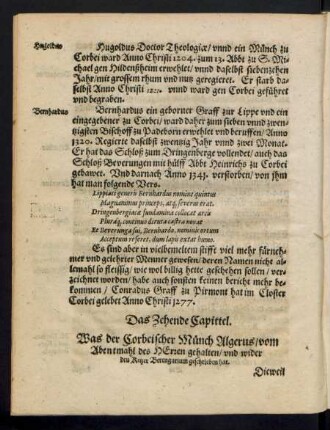 Hugoldus
Hugoldus Doctor Theologiæ/ vnnd ein Münch zu
Corbei ward Anno Christi 1204. zum 13. Abbt zu S. Mi-
chael gen Hildensheim erwehlet/ vnnd daselbst siebenzehen
Jahr/ mit grossem rhum vnd nutz geregieret. Er starb da-
selbst Anno Christi vnnd ward gen Corbei geführet
vnd begraben.
Bernhardus
Bernhardus ein geborner Graff zur Lippe vnd ein
eingegebener zu Corbei/ ward daher zum sieben vnnd zwen-
tzigsten Bischoff zu Padeborn erwehlet vnd beruffen/ Anno
1320. Regierte daselbst zwentzig Jahr vnnd zwei Monat.
Er hat das Schloß zum Dringenberge vollendet/ auch das
Schloß Beverungen mit hülff Abbt Heinrichs zu Corbei
gebawet. Vnd darnach Anno 1343. verstorben/ von jhm
hat man folgende Vers.
Lippiaci generis Bernhardus nomine quintus
Magnanimus princeps, atq; severus erat.
Dringenbergiacæ fundamina collocat arcis
Pluraq; continuo diruta castra novat
Et Beverunga sui, Bernharde, nominis ortum
Acceptum referet, dum lapis extat humo.
Es sind aber in vielbemeltem stifft viel mehr fürnehm-
mer vnd gelehrter Menner gewesen/ deren Namen nicht al-
lemahl so fleissig/ wie wol billig hette geschehen sollen/ ver-
zeichnet worden/ habe auch sonsten keinen bericht mehr be-
kommen/ Conradus Graff zu Pirmont hat im Closter
Corbei gelebet Anno Christi 1277.
Das Zehende Capittel.
Was der Corbeischer Münch Algerus/ vom
Abentmahl des HErren gehalten/ vnd wider
den Ketzer Berengarium geschrieben hat.
Dieweil